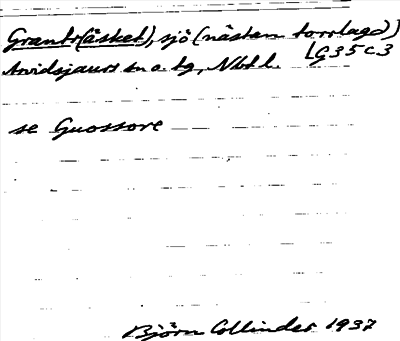 Granträ(sket), sjö (nästan torrlagd)
Arvidsjaurs sn o. tg, Nbt l. LG35c3
se Guossore
Björn Collinder 1937